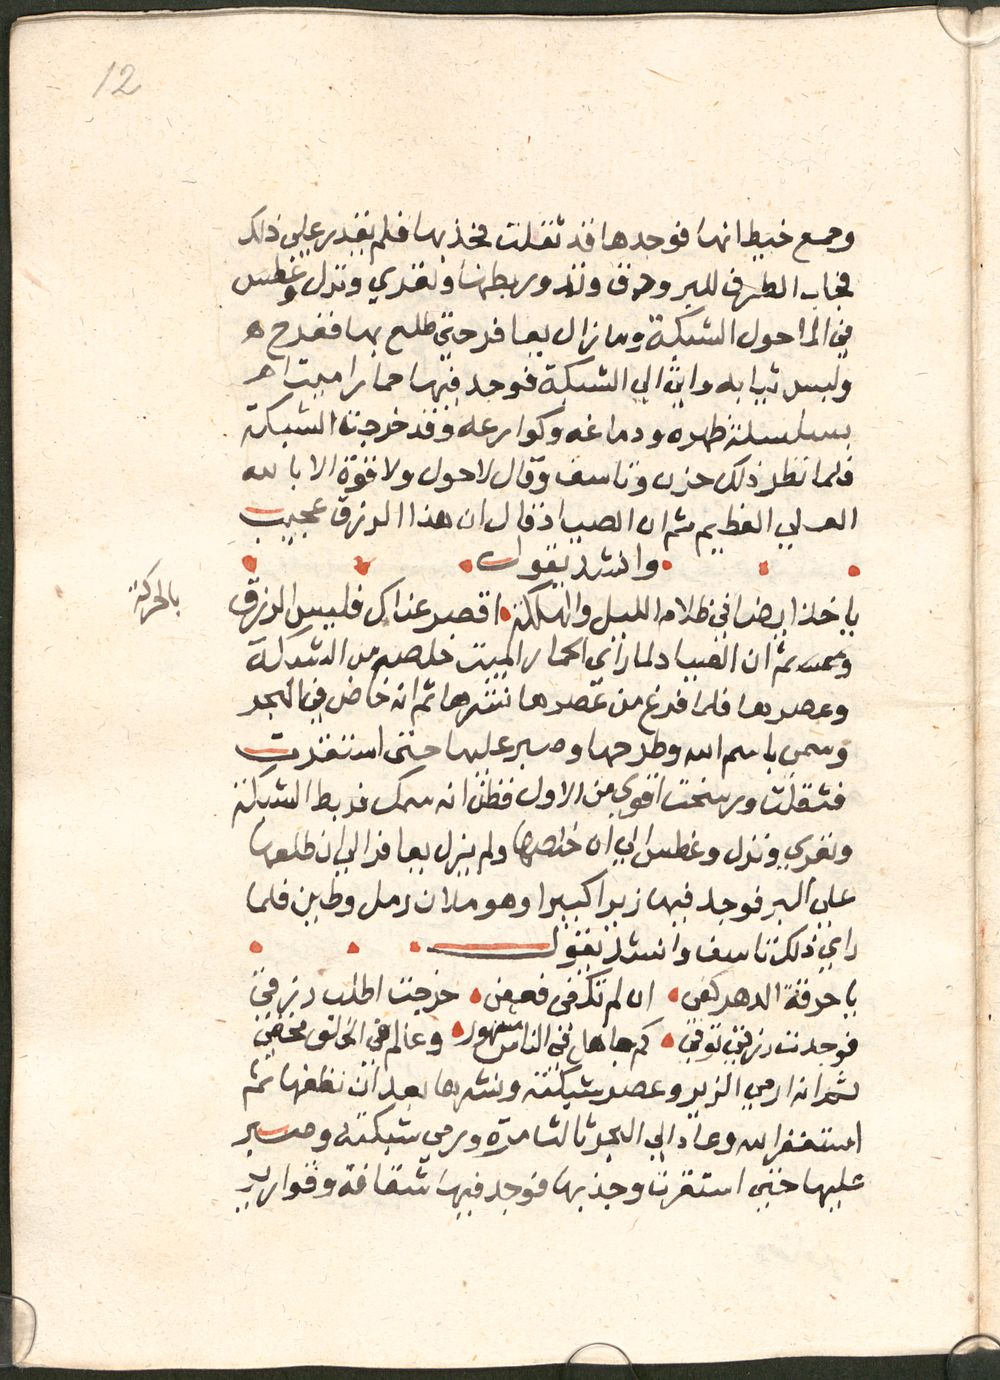 12
وجمع خيطانها فوجدها قد ثقلت فجذبها فلم يقدر على ذلك
فجاب الطرف للبر ودق وتد وربطها وتعري ونزل وغطس
في الما حول الشبكة وما زال يعافر حتى طلع بها ففرح
ولبس ثيابه واتى الى الشبكة فوجد فيها حمارا ميتا
بسلسلة ظهره ودماغه وكوارعه وقد خرجت الشبكة
فلما نظر ذلك حزن وتاسف وقال لا حول ولا قوة الا بالله
العلي العظيم ثم ان الصياد قال ان هذا الرزق عجيب
وانشد يقول
يا خايضا في ظلام الليل والهلكة اقصر عناك فليس الرزق
بالحركة
ثم ان الصياد لما راي الحمار الميت خلصه من الشبكة
وعصرها فلما فرغ من عصرها نشرها ثم انه خاض في البحر
وسمى باسم الله وطرحها وصبر عليها حتى استقرت
فثقلت ورسخت اقوي من الاول فظن انه سمك فربط الشبكة
وتعري ونزل وغطس الي ان خلصها ولم يزل يعافر الي ان طلعها
علي البر فوجد فيها زيرا كبيرا وهو ملان رمل وطين فلما
راي ذلك تاسف وانشد يقول
يا حرقة الدهر كفى ان لم تكفى فعفى خرجت اطلب رزقى
فوجدت رزقي توفي كم جاهل في الناس مشهور وعالم في الخلق مخفي
ثم انه ارمي الزير وعصر شبكته ونشرها بعد ان نظفها ثم
استغفر الله وعاد الي البحر ثالث مرة ورمي شبكته وصبر
عليها حتى استقرت وجذبها فوجد فيها شقافة وقوارير